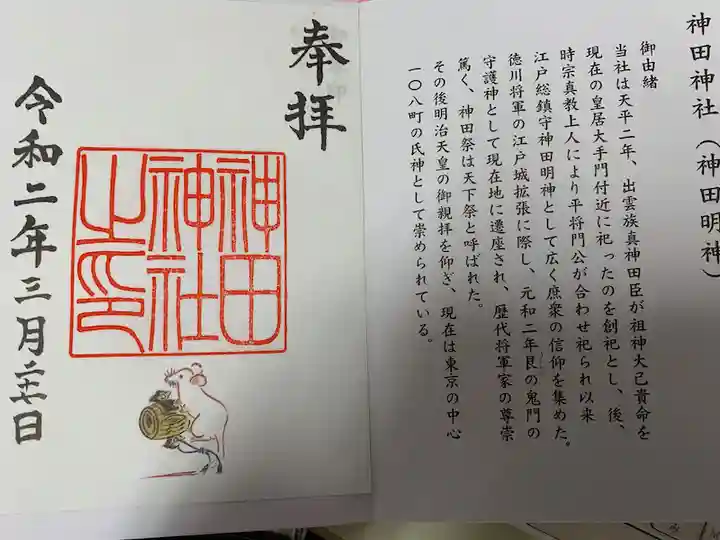 神田神社（神田明神）
御由緒
当社は天平二年、出雲族真神田臣が祖神大己貴命を
現在の皇居大手門付近に祀ったのを創祀とし、後、
時宗真教上人により平将門公が合わせ祀られ以来
江戸総鎮守神田明神として広く庶衆の信仰を集めた。
徳川将軍の江戸城拡張に際し、元和二年艮の鬼門の
守護神として現在地に遷座され、歴代将軍家の尊崇
篤く、神田祭は天下祭と呼ばれた。
その後明治天皇の御親拝を仰ぎ、現在は東京の中心
一〇八町の氏神として崇められている。
奉拝
神田
神社
之印
令和二年三月二十六日